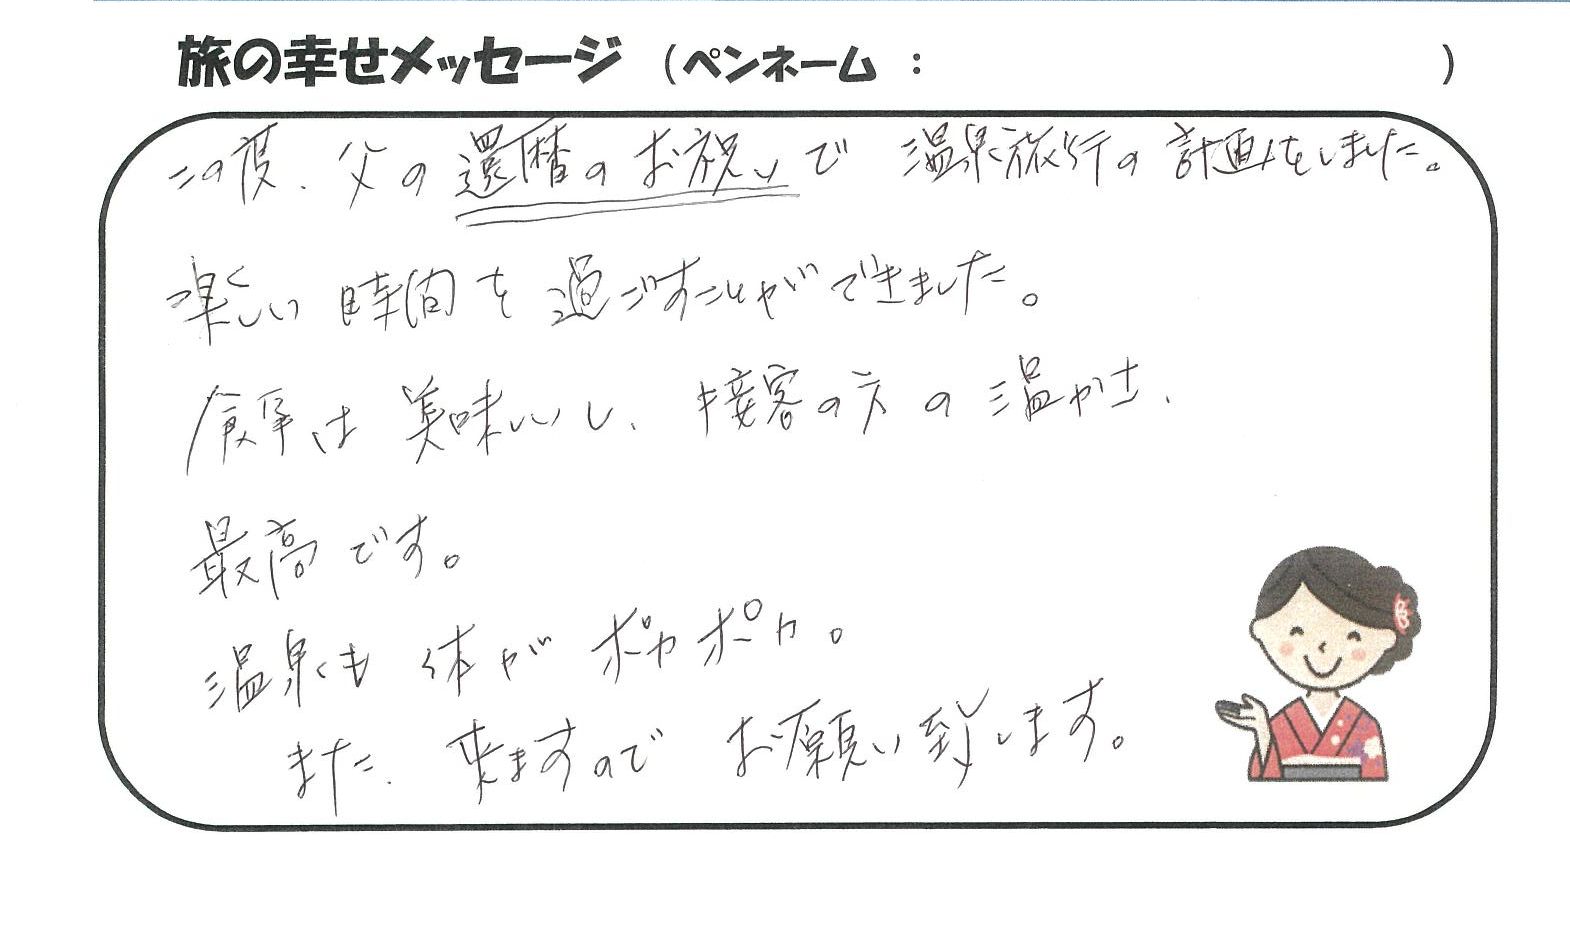 旅の幸せメッセージ (ペンネーム : )
この度、父の還暦のお祝いで 温泉旅行の計画をしました。
楽しい時間を過ごすことができました。
食事は美味いし、接客の方の温かさ、
最高です。
温泉も体がポカポカ。
また、来ますのでお願い致します。